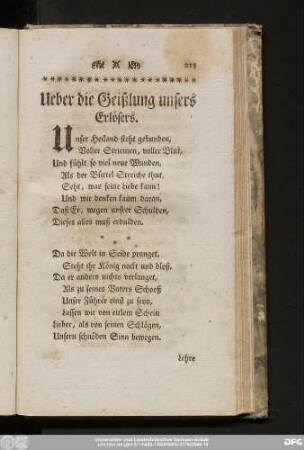 Ueber die Geißlung unsers
Erlösers.
Unser Heiland steht gebunden,
Voller Striemen, voller Blut,
Und fühlt so viel neue Wunden,
Als der Büttel Streiche thut.
Seht, was seine Liebe kann!
Und wir denken kaum daran,
Daß Er, wegen unsrer Schulden,
Dieses alles muß erdulden.
* * *
Da die Welt in Seide pranget,
Steht ihr König nackt und bloß,
Da er anders nichts verlanget,
Als zu seines Vaters Schooß
Unser Führer einst zu seyn,
Lassen wir von eitlem Schein
Lieber, als von seinen Schlägen,
Unsern schnöden Sinn bewegen.
Lehre